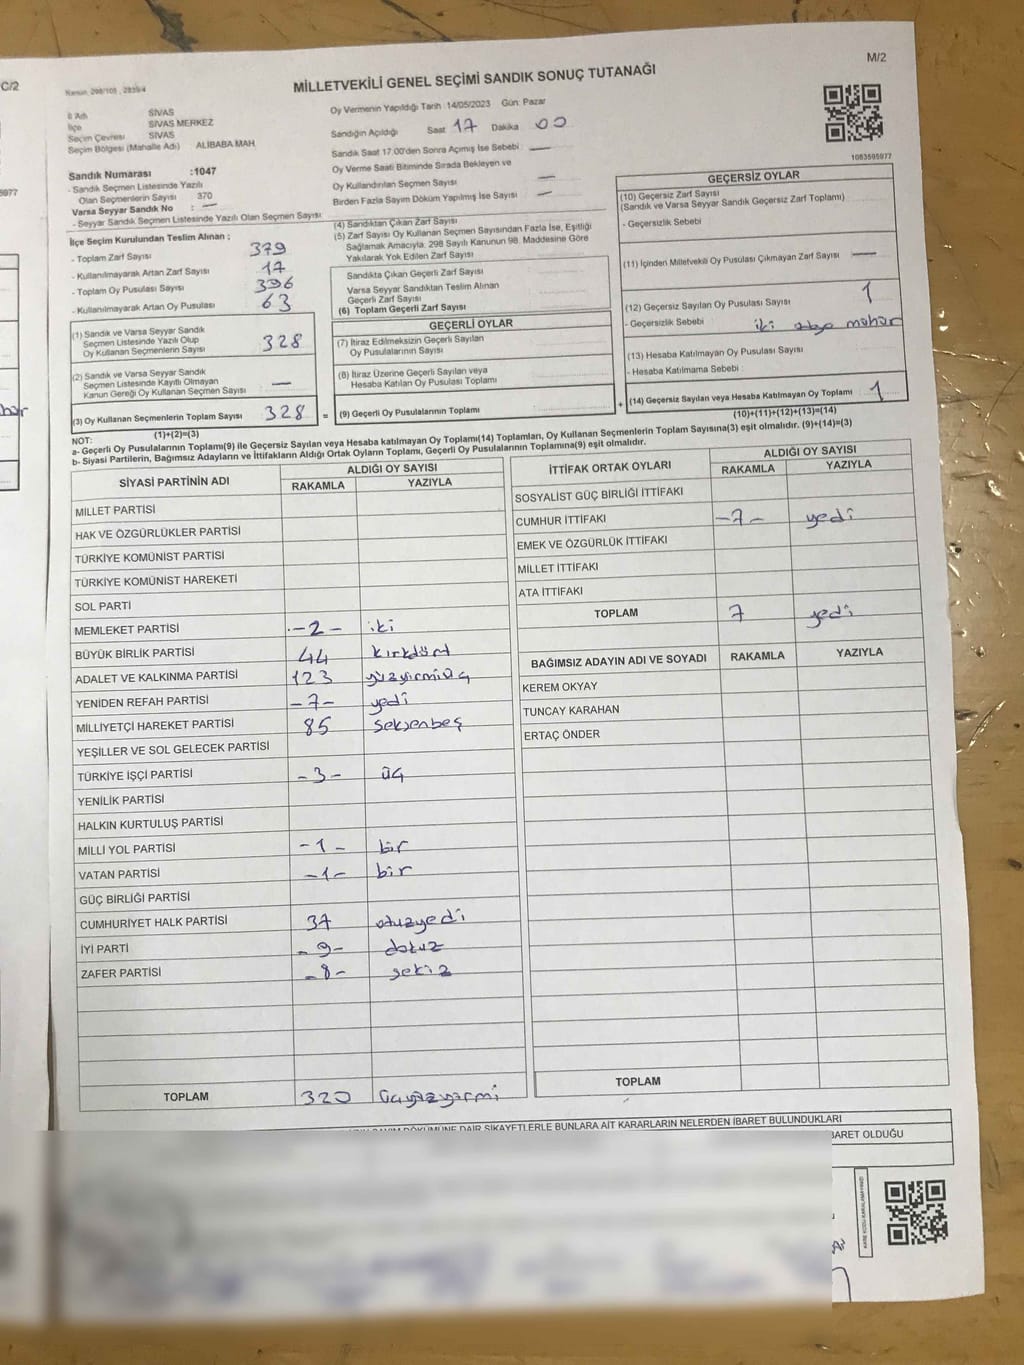 C/2
M/2
MİLLETVEKİLİ GENEL SEÇİMİ SANDIK SONUÇ TUTANAĞI
İl Adı SİVAS
İlçe SİVAS MERKEZ
Seçim Çevresi SİVAS
Seçim Bölgesi (Mahalle Adı) ALİBABA MAH.
Sandık Numarası :1047
- Sandık Seçmen Listesinde Yazılı
Olan Seçmenlerin Sayısı 370
Varsa Seyyar Sandık No : —
- Seyyar Sandık Seçmen Listesinde Yazılı Olan Seçmen Sayısı
Oy Vermenin Yapıldığı Tarih :14/05/2023 Gün: Pazar
Sandığın Açıldığı Saat 17 Dakika 00
Sandık Saat 17:00'den Sonra Açımış İse Sebebi —
Oy Verme Saati Bitiminde Sırada Bekleyen ve
Oy Kullandırılan Seçmen Sayısı —
Birden Fazla Sayım Döküm Yapılmış İse Sayısı —
1083595977
İlçe Seçim Kurulundan Teslim Alınan ;
- Toplam Zarf Sayısı 379
- Kullanılmayarak Artan Zarf Sayısı 17
- Toplam Oy Pusulası Sayısı 396
- Kullanılmayarak Artan Oy Pusulası 63
(1) Sandık ve Varsa Seyyar Sandık
Seçmen Listesinde Yazılı Olup
Oy Kullanan Seçmenlerin Sayısı 328
(2) Sandık ve Varsa Seyyar Sandık
Seçmen Listesinde Kayıtlı Olmayan
Kanun Gereği Oy Kullanan Seçmen Sayısı —
(3) Oy Kullanan Seçmenlerin Toplam Sayısı 328 =
(1)+(2)=(3)
(4) Sandıktan Çıkan Zarf Sayısı
(5) Zarf Sayısı Oy Kullanan Seçmen Sayısından Fazla İse, Eşitliği
Sağlamak Amacıyla, 298 Sayılı Kanunun 98. Maddesine Göre
Yakılarak Yok Edilen Zarf Sayısı
Sandıkta Çıkan Geçerli Zarf Sayısı
Varsa Seyyar Sandıktan Teslim Alınan
Geçerli Zarf Sayısı
(6) Toplam Geçerli Zarf Sayısı
GEÇERLİ OYLAR
(7) İtiraz Edilmeksizin Geçerli Sayılan
Oy Pusulalarının Sayısı
(8) İtiraz Üzerine Geçerli Sayılan veya
Hesaba Katılan Oy Pusulası Toplamı
(9) Geçerli Oy Pusulalarının Toplamı +
GEÇERSİZ OYLAR
(10) Geçersiz Zarf Sayısı
(Sandık ve Varsa Seyyar Sandık Geçersiz Zarf Toplamı)
- Geçersizlik Sebebi
(11) İçinden Milletvekili Oy Pusulası Çıkmayan Zarf Sayısı —
(12) Geçersiz Sayılan Oy Pusulası Sayısı 1
- Geçersizlik Sebebi iki mühür
(13) Hesaba Katılmayan Oy Pusulası Sayısı
- Hesaba Katılmama Sebebi
(14) Geçersiz Sayılan veya Hesaba Katılmayan Oy Toplamı 1
(10)+(11)+(12)+(13)=(14)
NOT:
a- Geçerli Oy Pusulalarının Toplamı(9) ile Geçersiz Sayılan veya Hesaba katılmayan Oy Toplamı(14) Toplamları, Oy Kullanan Seçmenlerin Toplam Sayısına(3) eşit olmalıdır. (9)+(14)=(3)
b- Siyasi Partilerin, Bağımsız Adayların ve İttifakların Aldığı Ortak Oyların Toplamı, Geçerli Oy Pusulalarının Toplamına(9) eşit olmalıdır.
SİYASİ PARTİNİN ADI ALDIĞI OY SAYISI
RAKAMLA YAZIYLA
MİLLET PARTİSİ
HAK VE ÖZGÜRLÜKLER PARTİSİ
TÜRKİYE KOMÜNİST PARTİSİ
TÜRKİYE KOMÜNİST HAREKETİ
SOL PARTİ
MEMLEKET PARTİSİ -2- iki
BÜYÜK BİRLİK PARTİSİ 44 kırkdört
ADALET VE KALKINMA PARTİSİ 123 yüzyirmiüç
YENİDEN REFAH PARTİSİ -7- yedi
MİLLİYETÇİ HAREKET PARTİSİ 85 seksenbeş
YEŞİLLER VE SOL GELECEK PARTİSİ
TÜRKİYE İŞÇİ PARTİSİ -3- üç
YENİLİK PARTİSİ
HALKIN KURTULUŞ PARTİSİ
MİLLİ YOL PARTİSİ -1- bir
VATAN PARTİSİ -1- bir
GÜÇ BİRLİĞİ PARTİSİ
CUMHURİYET HALK PARTİSİ 37 otuzyedi
İYİ PARTİ -9- dokuz
ZAFER PARTİSİ -8- sekiz
TOPLAM 320 üçyüzyirmi
İTTİFAK ORTAK OYLARI ALDIĞI OY SAYISI
RAKAMLA YAZIYLA
SOSYALİST GÜÇ BİRLİĞİ İTTİFAKI
CUMHUR İTTİFAKI -7- yedi
EMEK VE ÖZGÜRLÜK İTTİFAKI
MİLLET İTTİFAKI
ATA İTTİFAKI
TOPLAM 7 yedi
BAĞIMSIZ ADAYIN ADI VE SOYADI RAKAMLA YAZIYLA
KEREM OKYAY
TUNCAY KARAHAN
ERTAÇ ÖNDER
TOPLAM
DÖKÜMÜNE DAİR ŞİKAYETLERLE BUNLARA AİT KARARLARIN NELERDEN İBARET BULUNDUKLARI
BARET OLDUĞU